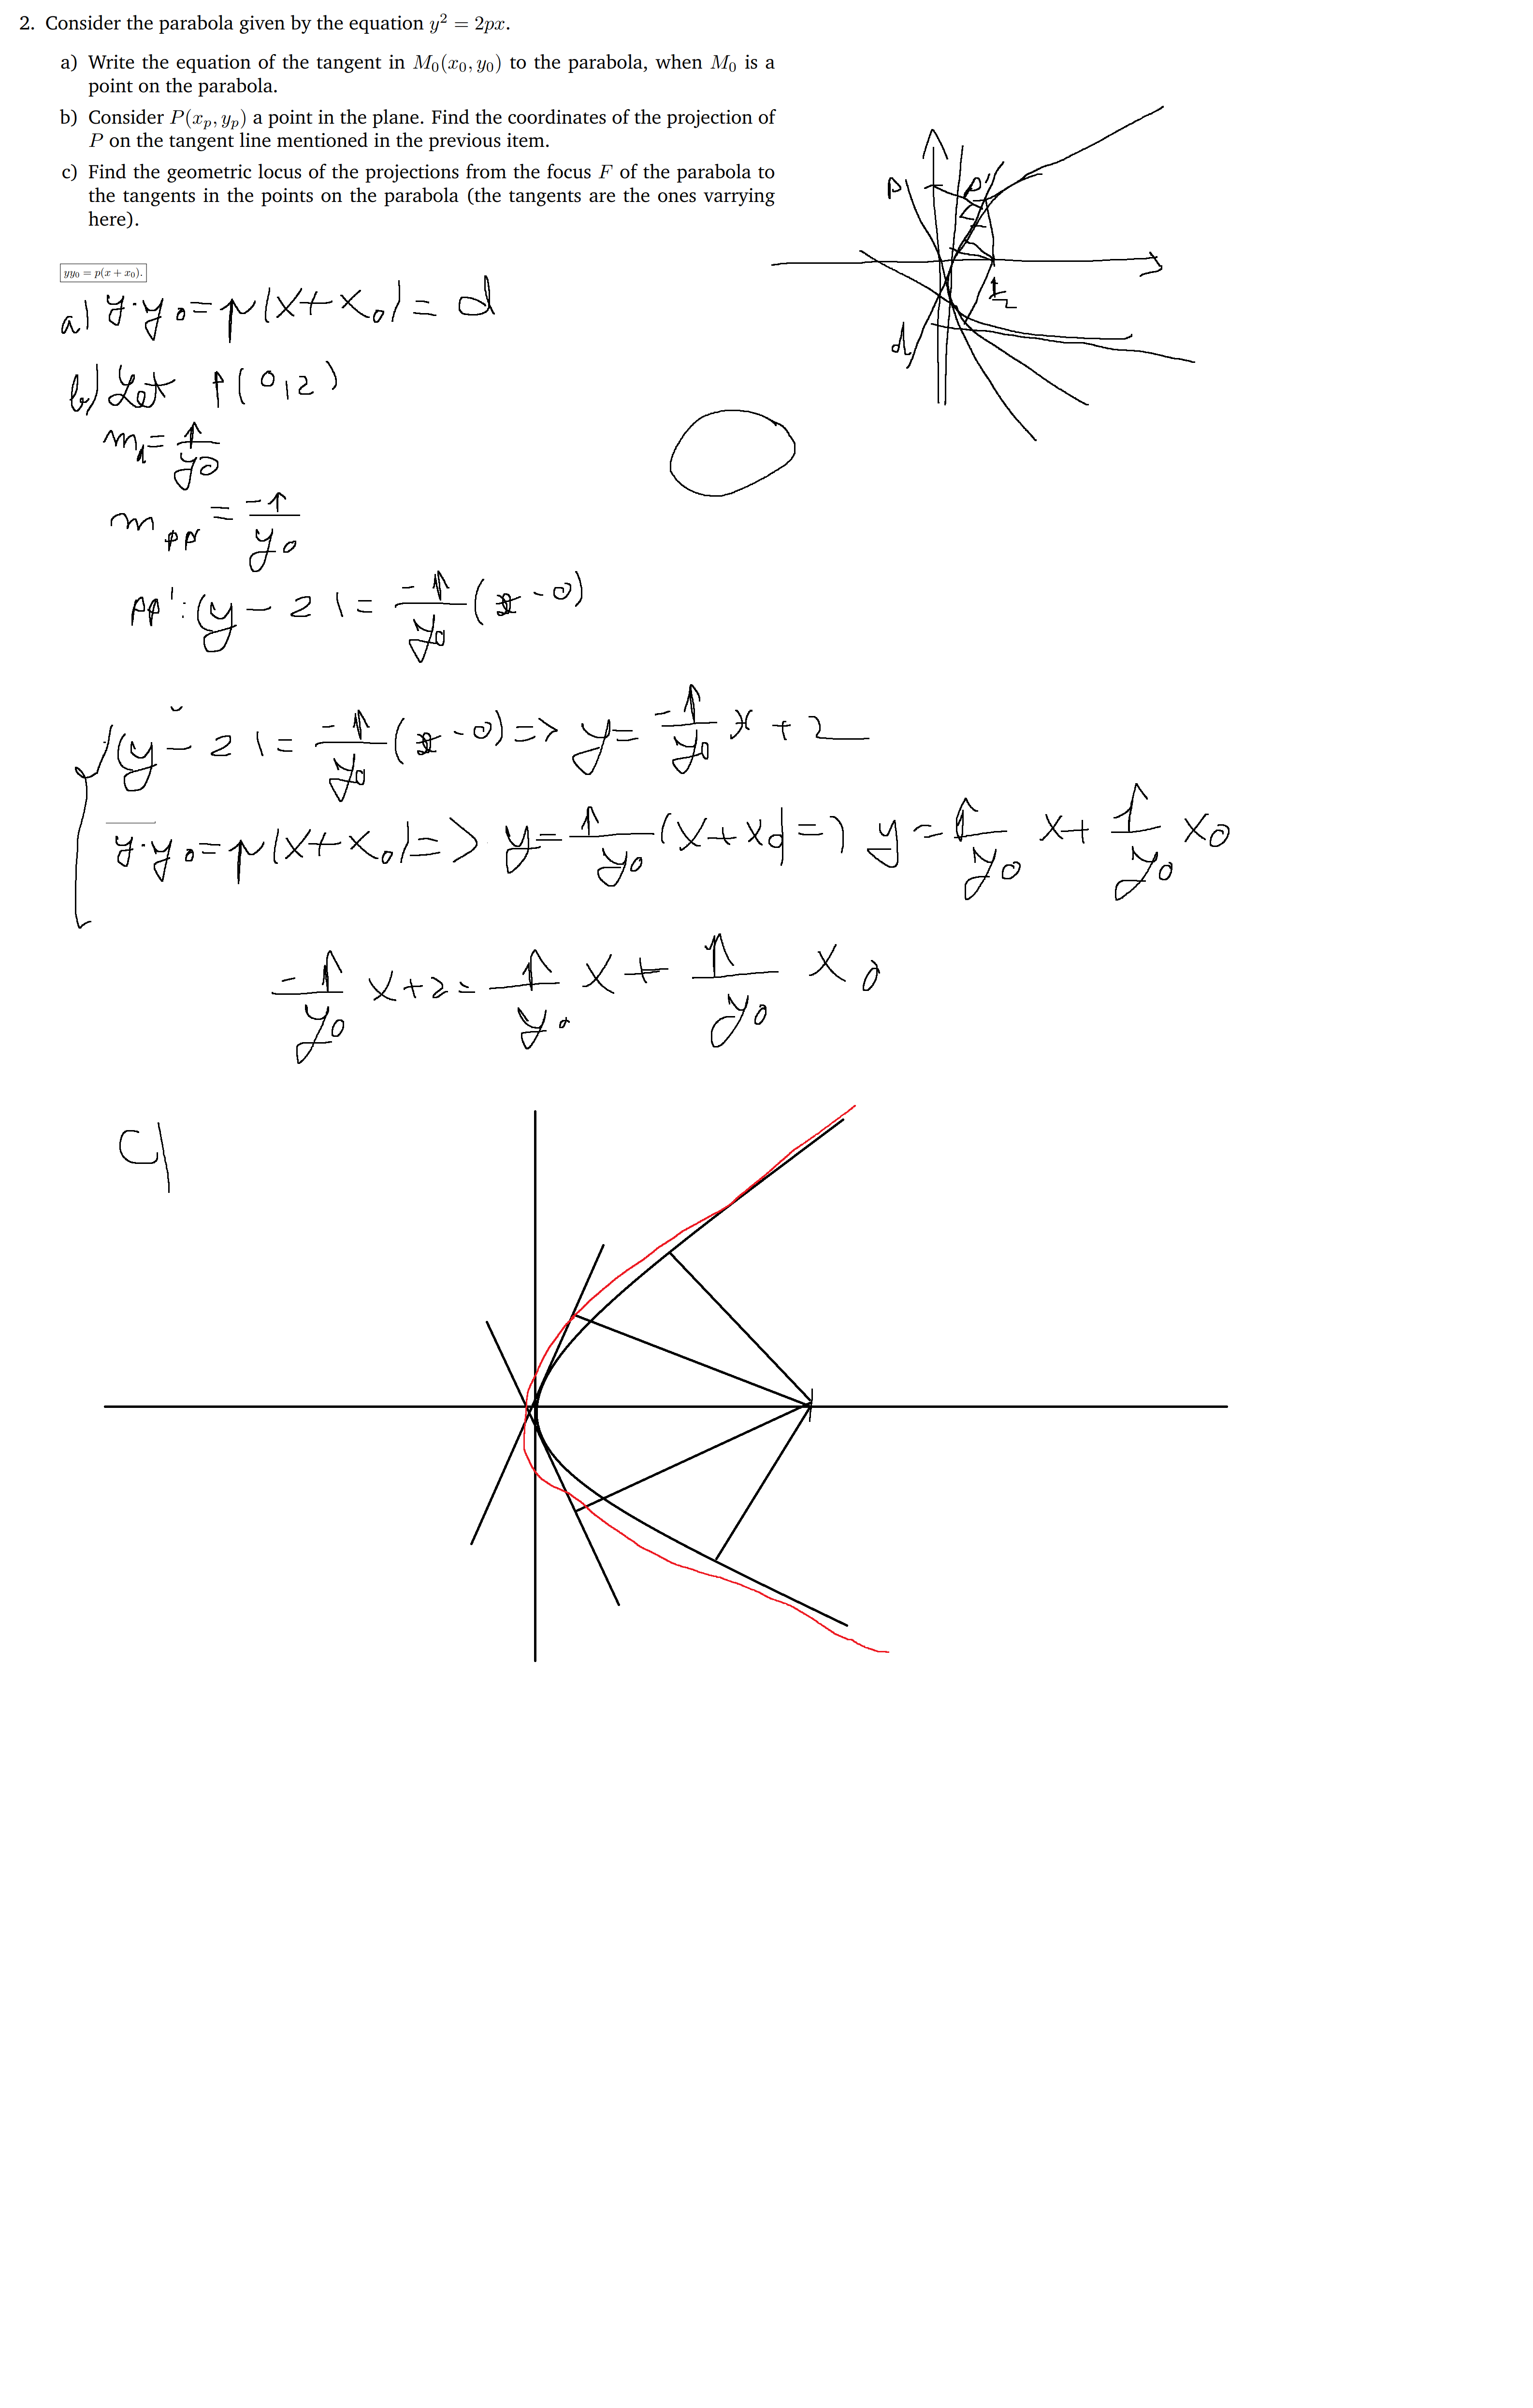 2. Consider the parabola given by the equation y² = 2px.
a) Write the equation of the tangent in M₀(x₀, y₀) to the parabola, when M₀ is a
point on the parabola.
b) Consider P(xₚ, yₚ) a point in the plane. Find the coordinates of the projection of
P on the tangent line mentioned in the previous item.
c) Find the geometric locus of the projections from the focus F of the parabola to
the tangents in the points on the parabola (the tangents are the ones varrying
here).
P
P'
d
yy₀ = p(x + x₀).
a) y·y₀ = p(x+x₀) = d
b) Let P(0,2)
m_d = p/y₀
m_pp' = -p/y₀
PP': (y - 2) = -p/y₀ (x - 0)
(y - 2) = -p/y₀ (x - 0) => y = -p/y₀ x + 2
y·y₀ = p(x+x₀) => y = p/y₀ (x+x₀) => y = p/y₀ x + p/y₀ x₀
-p/y₀ x + 2 = p/y₀ x + p/y₀ x₀
c)